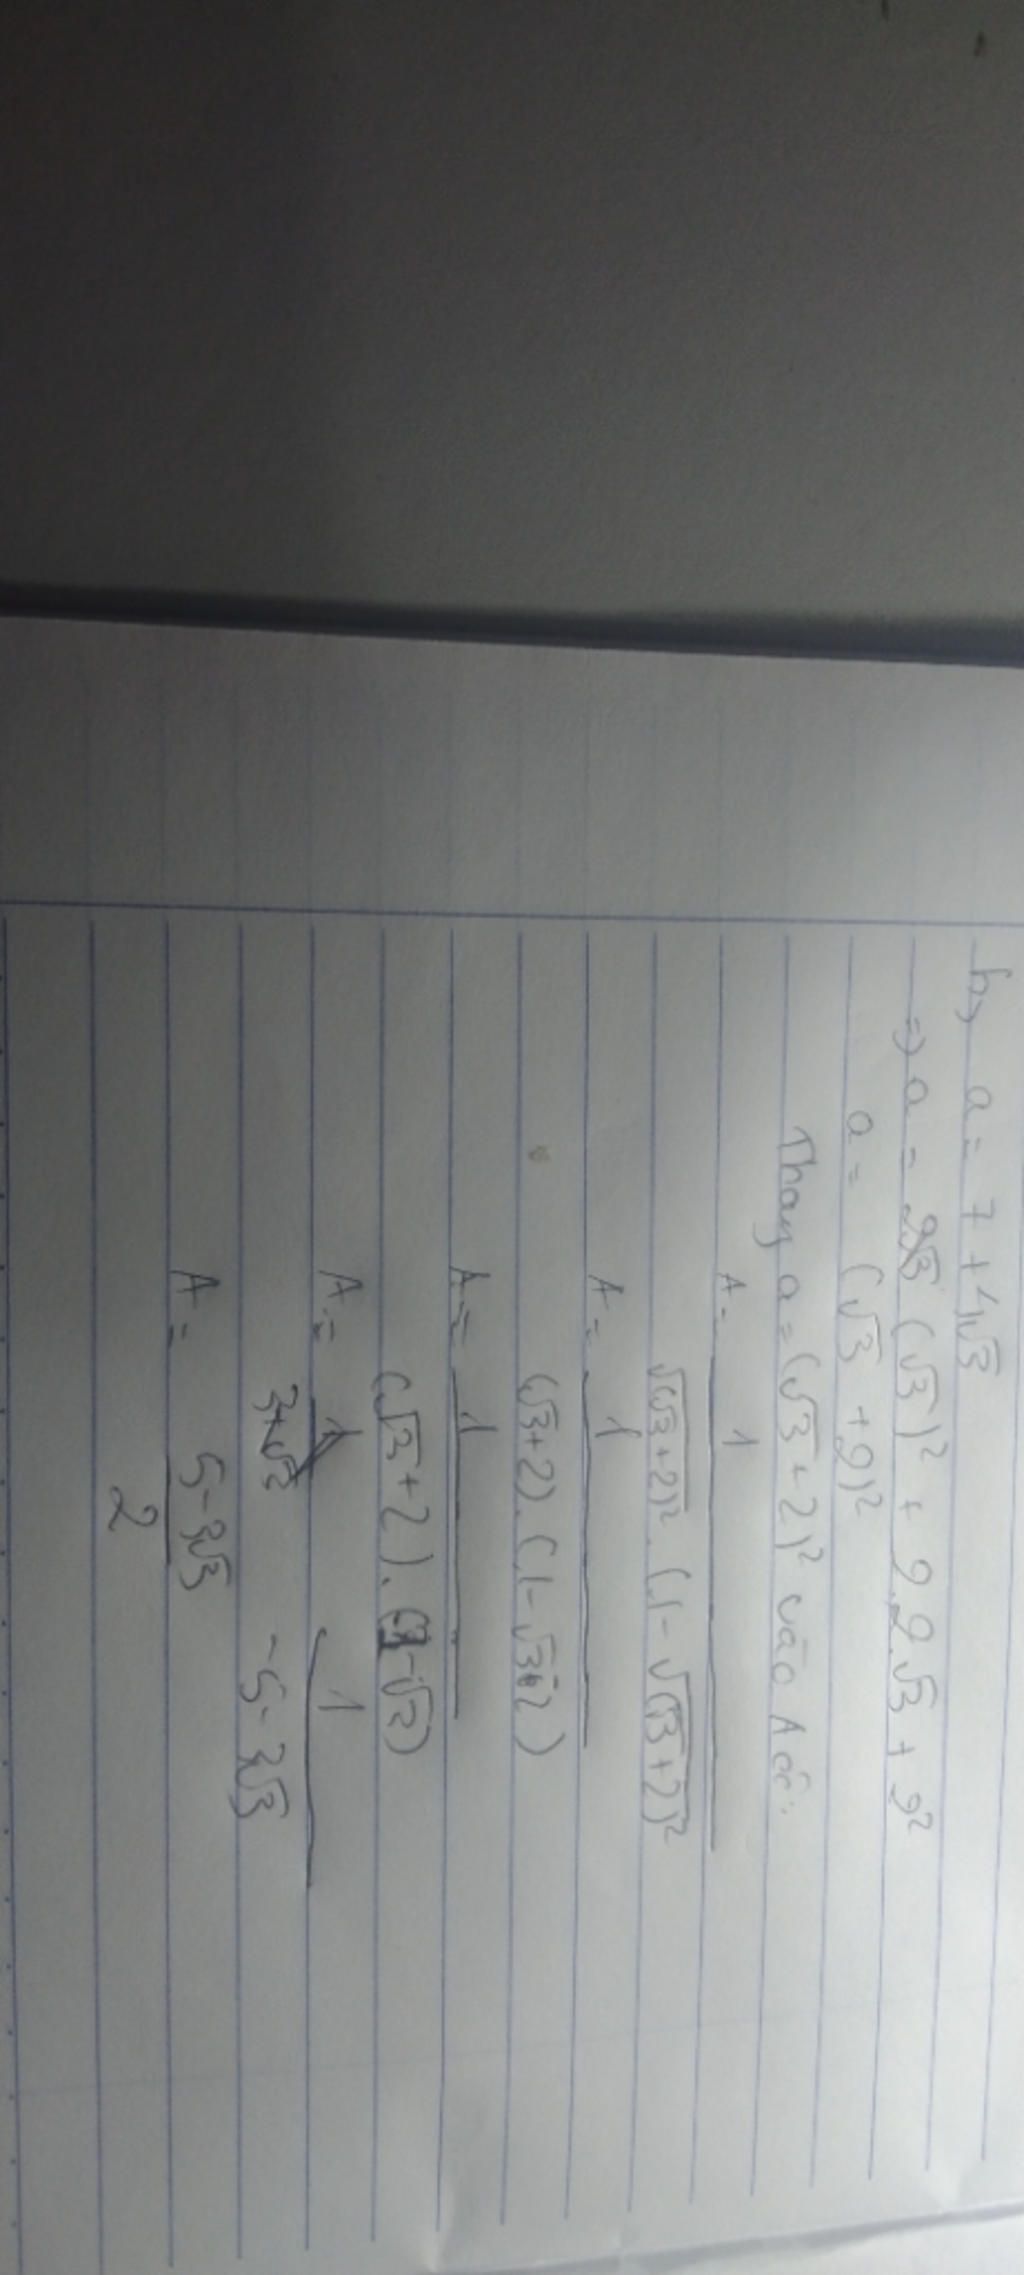 b> a = 7 + 4√3
=> a = (√3)² + 2.2.√3 + 2²
a = (√3 + 2)²
Thay a = (√3 + 2)² vào A đc:
A = 1 / √(√3+2)² . (1 - √(√3+2)²)
A = 1 / (√3+2) . (1 - √3 - 2)
A = 1 / (√3+2) . (-1 - √3)
A = 1 / -5 - 3√3
A = 5 - 3√3 / 2